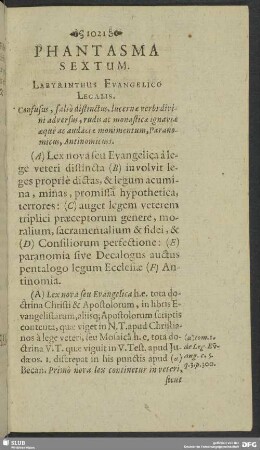 1021
PHANTASMA
SEXTUM.
LABYRINTHUS EVANGELICO
LEGALIS.
Confusus, falsò distinctus, lucernæ verbi divi-
ni adversus, rudis ac monasticæ ignaviæ
æquè ac audaciæ monimentum, Parano-
micus, Antinomicus.
(A) Lex nova seu Evangelica à le-
ge veteri distincta (B) involvit le-
ges propriè dictas, & legum acumi-
na, minas, promissa hypothetica,
terrores: (C) auget legem veterem
triplici præceptorum genere, mo-
ralium, sacramentalium & fidei, &
(D) Consiliorum perfectione: (E)
paranomia sive Decalogus auctus
pentalogo legum Ecclesiæ (F) An-
tinomia.
(A) Lex nova seu Evangelica h.e. tota do-
ctrina Christi & Apostolorum, in libris E-
vangelistarum, aliisq; Apostolorum scriptis
contenta, quæ viget in N.T. apud Christia-
nos à lege veteri, seu Mosaicâ h.e. tota do-
ctrina V.T. quæ viguit in V. Test. apud Ju-
dæos. 1. discrepat in his punctis apud (a)
Becan. Primò nova lex continetur in veteri,
sicut
(a) tom. 2.
de Leg. E-
ang. c. 5.
q. 3. p. 300.
SLUB
DFG